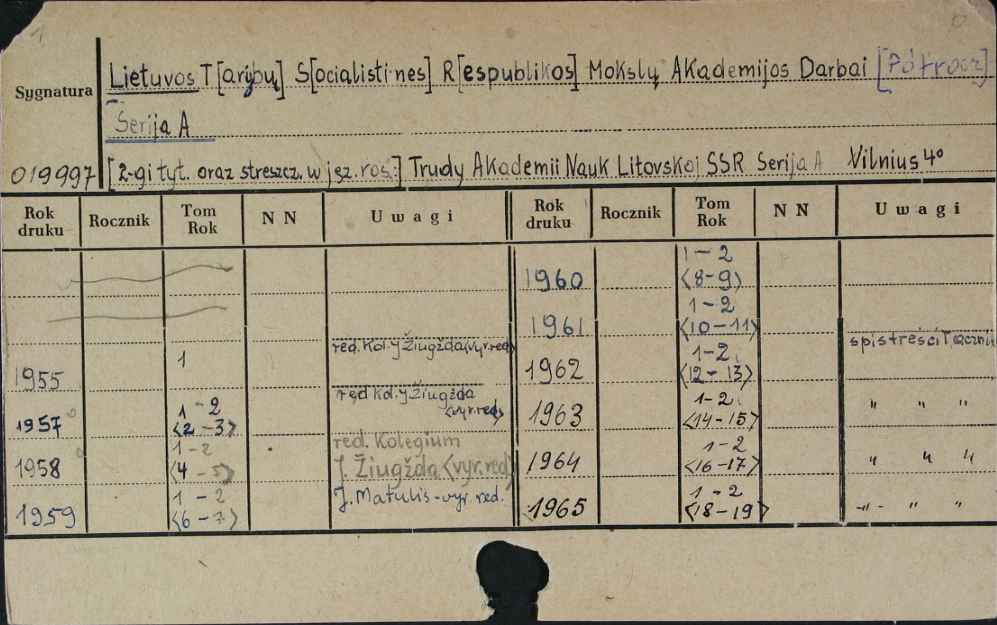 Lietuvos T[arybų] S[ocialistines] R[espublikos] Mokslų Akademijos Darbai [Półrocz]
Sygnatura
Serija A
019997 [2-gi tyt. oraz streszcz. w jęz. ros.] Trudy Akademii Nauk Litovskoj SSR Serija A Vilnius 4°
Rok druku Rocznik Tom Rok NN Uwagi Rok druku Rocznik Tom Rok NN Uwagi
1960 1-2 <8-9>
1961 1-2 <10-11>
1955 1 red. Kol. J Žiugžda (vyr.red) 1962 1-2 <12-13> spis treści łączni
1957 1-2 <2-3> red Kol. J Žiugžda <vyr.red> 1963 1-2 <14-15> " " "
1958 1-2 <4-5> red. Kolegium J. Žiugžda <vyr.red> 1964 1-2 <16-17> " " "
1959 1-2 <6-7> J. Matulis-vyr red. 1965 1-2 <18-19> -"- " "